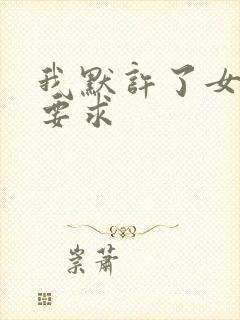 我默許了女
要求
崇蕭